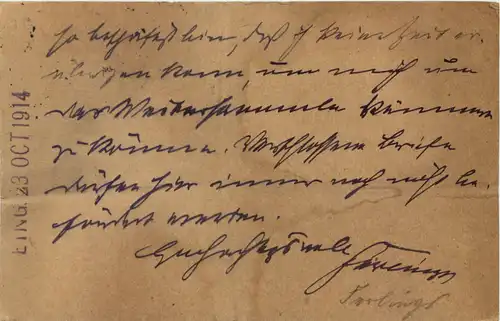 so beschäftigt bin, daß ich keine Zeit er-
übrigen kann, um mich um
das Weitersammeln kümmern
zu können. Verschlossene Briefe
dürfen hier immer noch nicht be-
fördert werden.
Hochachtungsvoll
EING. 23 OCT 1914